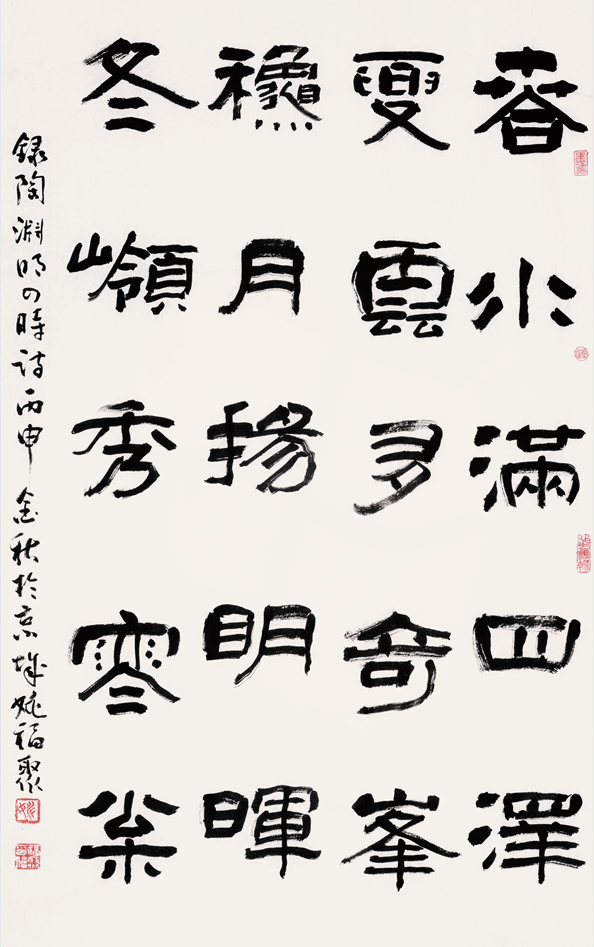 春水滿四澤
夏雲多奇峯
龝月揚眀暉
冬嶺秀寒枀
録陶淵明四時詩丙申金秋於京城姚福聚